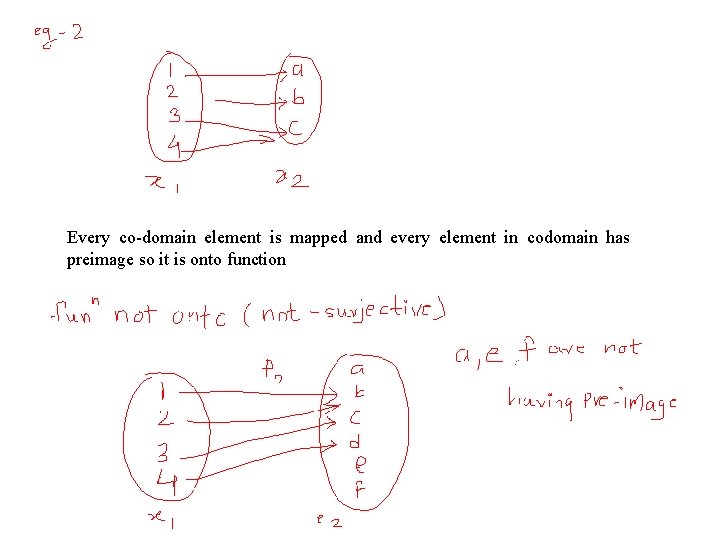 eg - 2
1 a
2 b
3 c
4
x1 x2
Every co-domain element is mapped and every element in codomain has
preimage so it is onto function
funⁿ not onto (not-surjective)
a, e, f are not
having pre-image
a
1 b
2 c
3 d
4 e
f
x1 x2